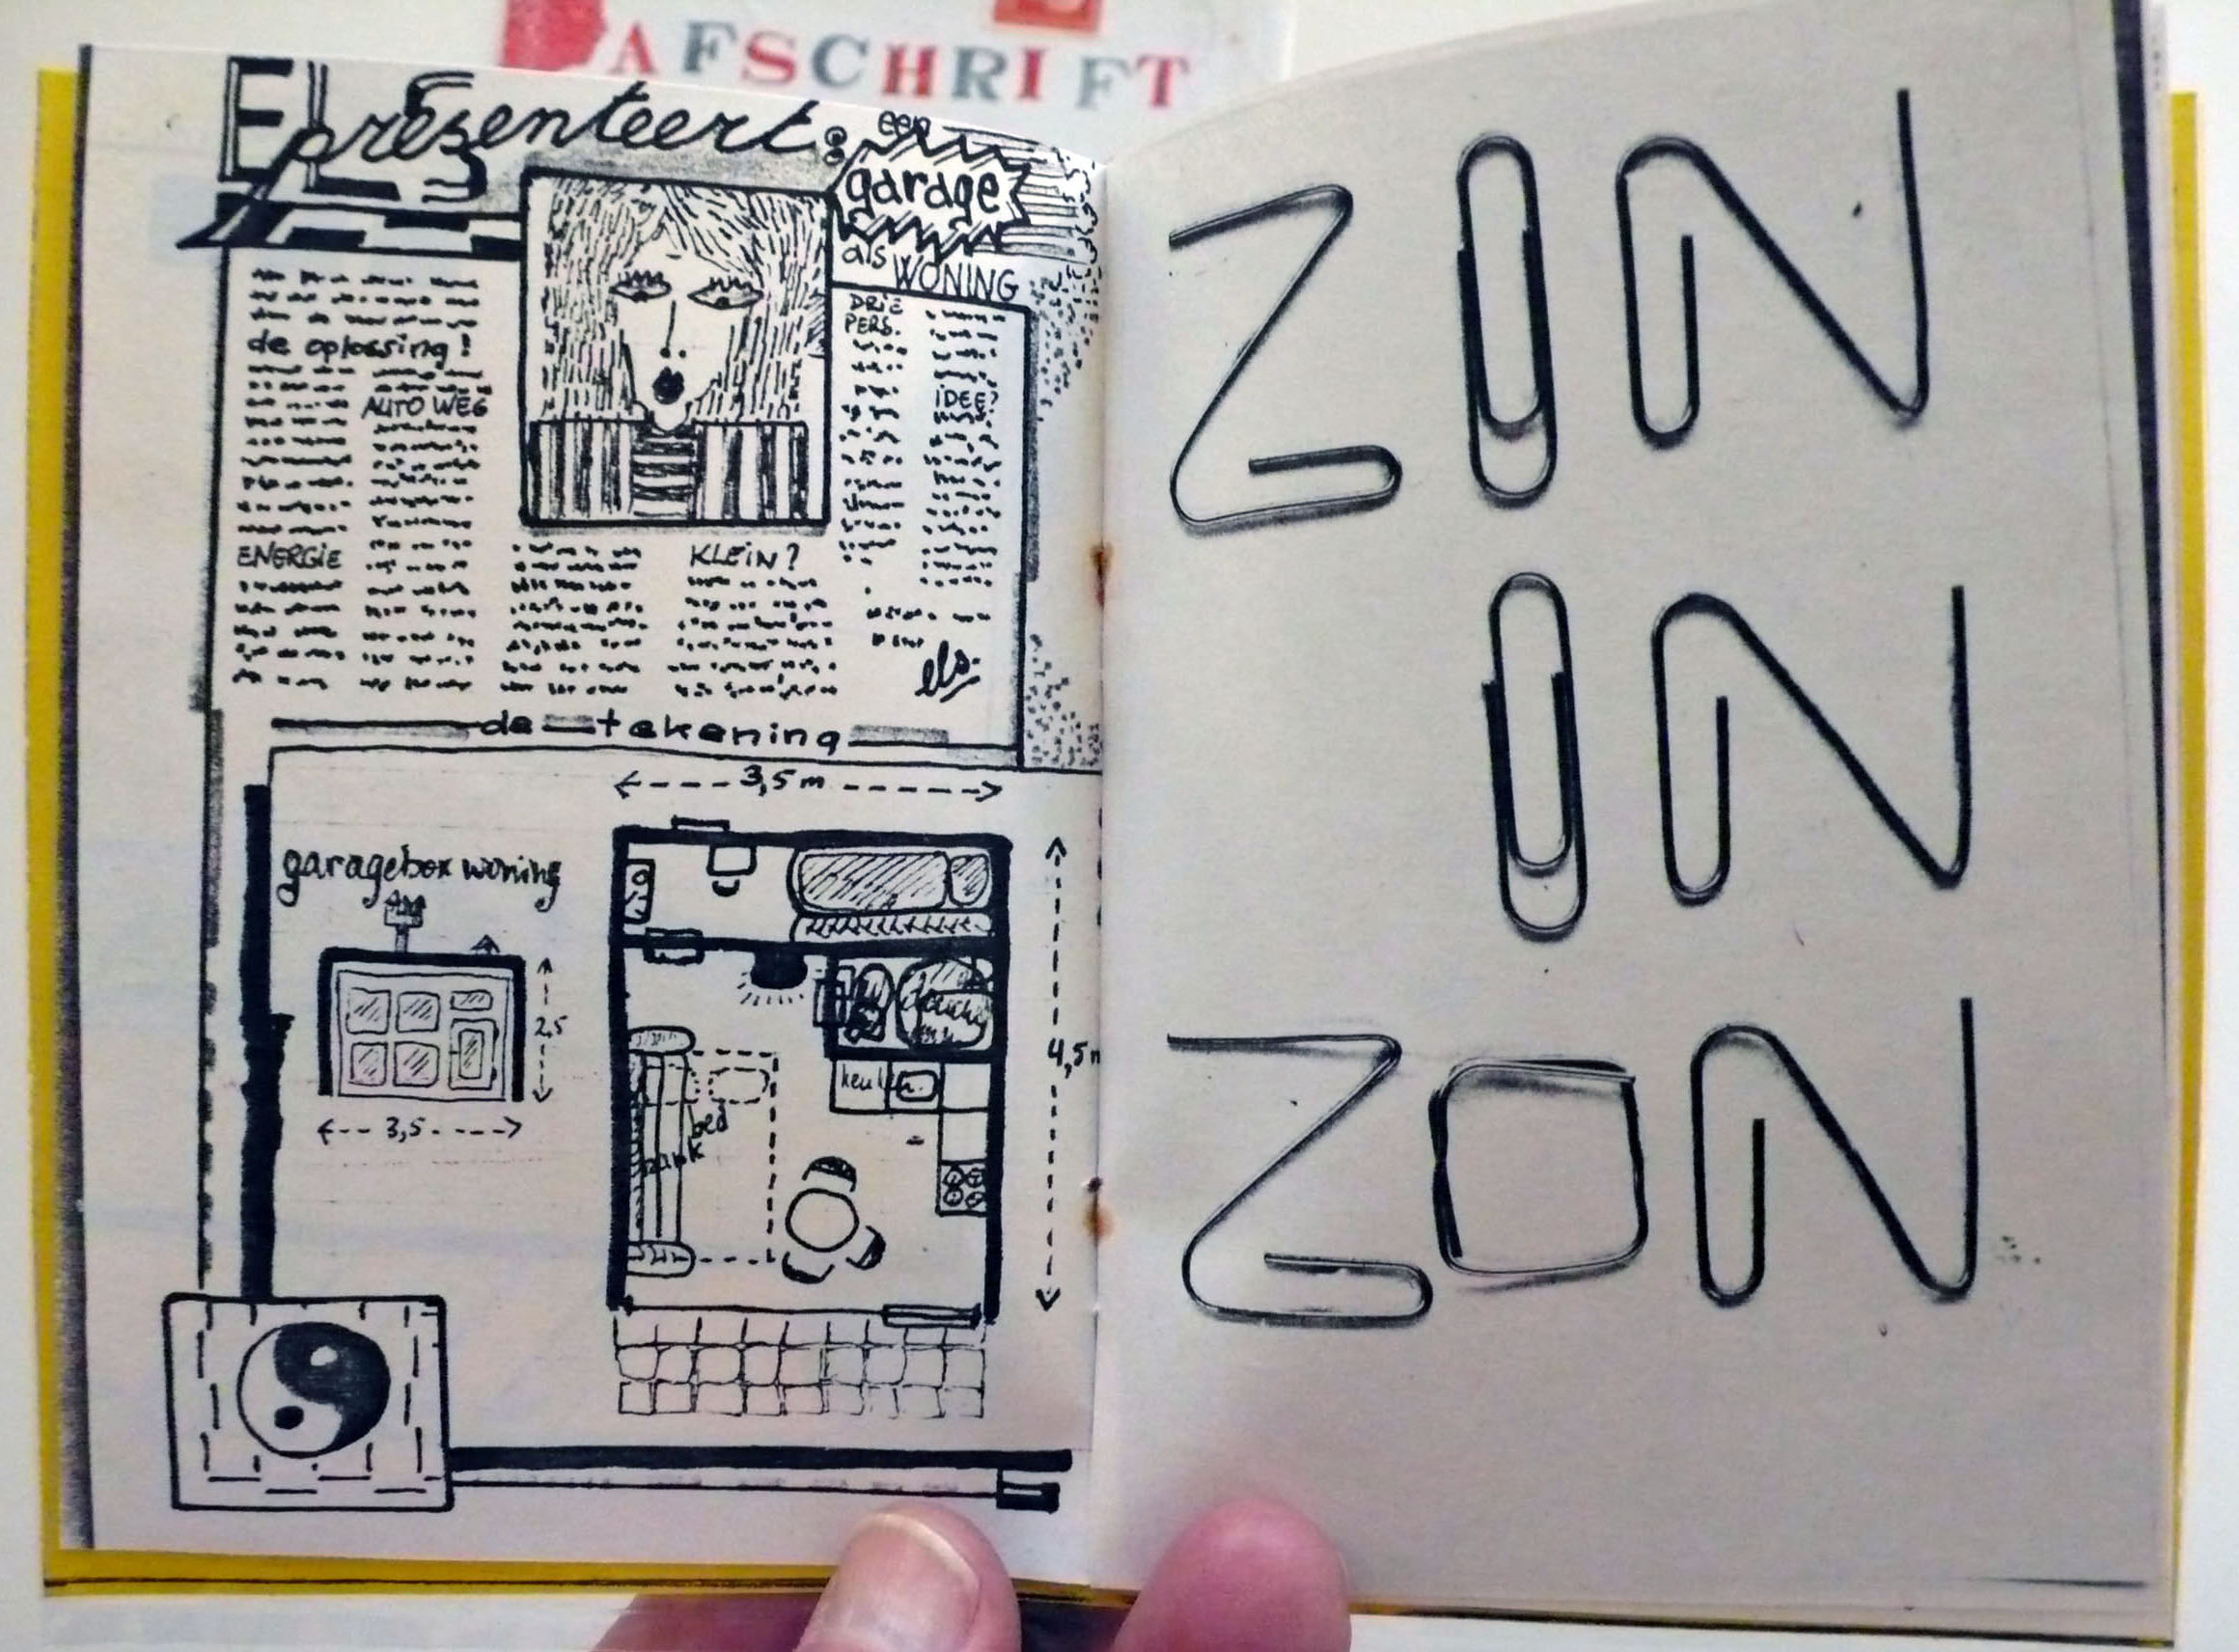 AFSCHRIFT
Els presenteert:
een
garage
als
WONING
de oplossing!
AUTO WEG
ENERGIE
KLEIN?
DRIE
PERS.
IDEE?
els.
de tekening
3,5 m
garagebox woning
2,5
3,5
4,5 m
douche
keuken
bed
bank
ZIN
IN
ZON